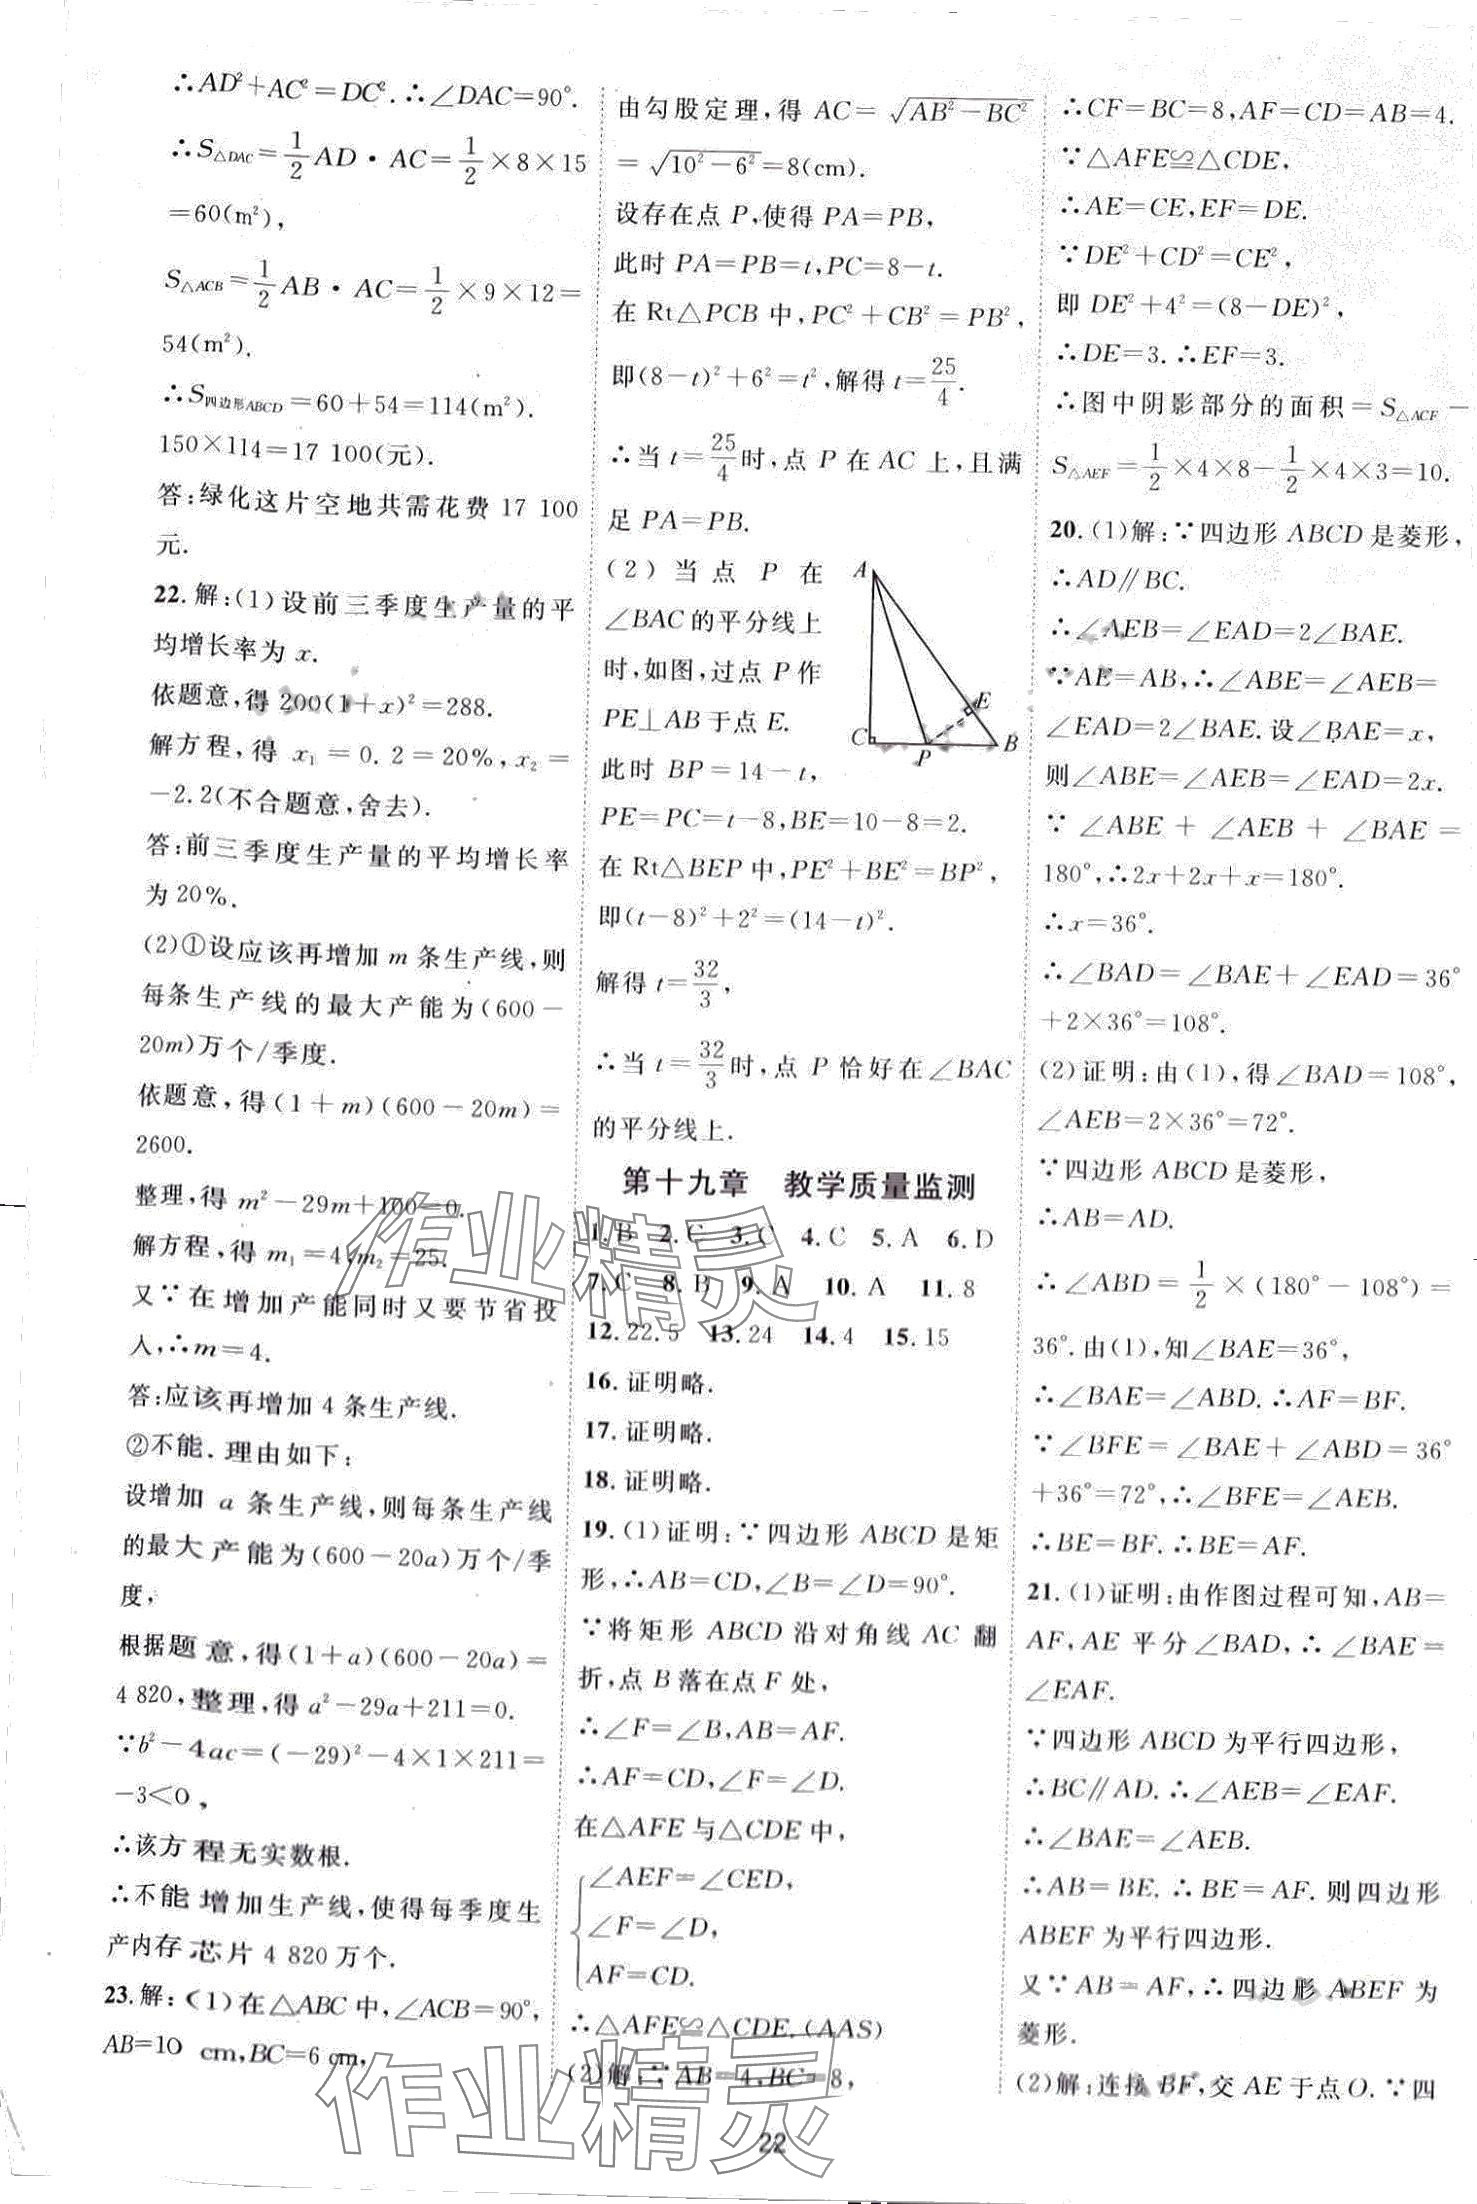 ∴AD²+AC²=DC².∴∠DAC=90°.
∴S△DAC=1/2 AD·AC=1/2×8×15
=60(m²),
S△ACB=1/2 AB·AC=1/2×9×12=
54(m²).
∴S四边形ABCD=60+54=114(m²).
150×114=17 100(元).
答:绿化这片空地共需花费 17 100
元.
22.解:(1)设前三季度生产量的平
均增长率为 x.
依题意,得 200(1+x)²=288.
解方程,得 x₁=0.2=20%,x₂=
-2.2(不合题意,舍去).
答:前三季度生产量的平均增长率
为 20%.
(2)①设应该再增加 m 条生产线,则
每条生产线的最大产能为(600-
20m)万个/季度.
依题意,得(1+m)(600-20m)=
2600.
整理,得 m²-29m+100=0.
解方程,得 m₁=4,m₂=25.
又∵在增加产能同时又要节省投
入,∴m=4.
答:应该再增加 4 条生产线.
②不能.理由如下:
设增加 a 条生产线,则每条生产线
的最大产能为(600-20a)万个/季
度,
根据题意,得(1+a)(600-20a)=
4 820,整理,得 a²-29a+211=0.
∵b²-4ac=(-29)²-4×1×211=
-3<0,
∴该方程无实数根.
∴不能增加生产线,使得每季度生
产内存芯片 4 820 万个.
23.解:(1)在△ABC 中,∠ACB=90°,
AB=10 cm,BC=6 cm,
由勾股定理,得 AC=√(AB²-BC²)
=√(10²-6²)=8(cm).
设存在点 P,使得 PA=PB,
此时 PA=PB=t,PC=8-t.
在 Rt△PCB 中,PC²+CB²=PB²,
即(8-t)²+6²=t²,解得 t=25/4.
∴当 t=25/4时,点 P 在 AC 上,且满
足 PA=PB.
(2)当点 P 在
∠BAC 的平分线上
时,如图,过点 P 作
PE⊥AB 于点 E.
此时 BP=14-t,
A
E
C
P
B
PE=PC=t-8,BE=10-8=2.
在 Rt△BEP 中,PE²+BE²=BP²,
即(t-8)²+2²=(14-t)².
解得 t=32/3,
∴当 t=32/3时,点 P 恰好在∠BAC
的平分线上.
第十九章 教学质量监测
1.B 2.C 3.C 4.C 5.A 6.D
7.C 8.B 9.A 10.A 11.8
12.22.5 13.24 14.4 15.15
16.证明略.
17.证明略.
18.证明略.
19.(1)证明:∵四边形 ABCD 是矩
形,∴AB=CD,∠B=∠D=90°.
∵将矩形 ABCD 沿对角线 AC 翻
折,点 B 落在点 F 处,
∴∠F=∠B,AB=AF.
∴AF=CD,∠F=∠D.
在△AFE 与△CDE 中,
∠AEF=∠CED,
∠F=∠D,
AF=CD.
∴△AFE≌△CDE.(AAS)
(2)解:∵AB=4,BC=8,
∴CF=BC=8,AF=CD=AB=4.
∵△AFE≌△CDE,
∴AE=CE,EF=DE.
∵DE²+CD²=CE²,
即 DE²+4²=(8-DE)²,
∴DE=3.∴EF=3.
∴图中阴影部分的面积=S△ACF-
S△AEF=1/2×4×8-1/2×4×3=10.
20.(1)解:∵四边形 ABCD 是菱形,
∴AD∥BC.
∴∠AEB=∠EAD=2∠BAE.
∵AE=AB,∴∠ABE=∠AEB=
∠EAD=2∠BAE.设∠BAE=x,
则∠ABE=∠AEB=∠EAD=2x.
∵∠ABE+∠AEB+∠BAE=
180°,∴2x+2x+x=180°.
∴x=36°.
∴∠BAD=∠BAE+∠EAD=36°
+2×36°=108°.
(2)证明:由(1),得∠BAD=108°,
∠AEB=2×36°=72°.
∵四边形 ABCD 是菱形,
∴AB=AD.
∴∠ABD=1/2×(180°-108°)=
36°.由(1),知∠BAE=36°,
∴∠BAE=∠ABD.∴AF=BF.
∵∠BFE=∠BAE+∠ABD=36°
+36°=72°,∴∠BFE=∠AEB.
∴BE=BF.∴BE=AF.
21.(1)证明:由作图过程可知,AB=
AF,AE 平分∠BAD,∴∠BAE=
∠EAF.
∵四边形 ABCD 为平行四边形,
∴BC∥AD.∴∠AEB=∠EAF.
∴∠BAE=∠AEB.
∴AB=BE.∴BE=AF.则四边形
ABEF 为平行四边形.
又∵AB=AF,∴四边形 ABEF 为
菱形.
(2)解:连接 BF,交 AE 于点 O.∵四
作业精灵
作业精灵
22